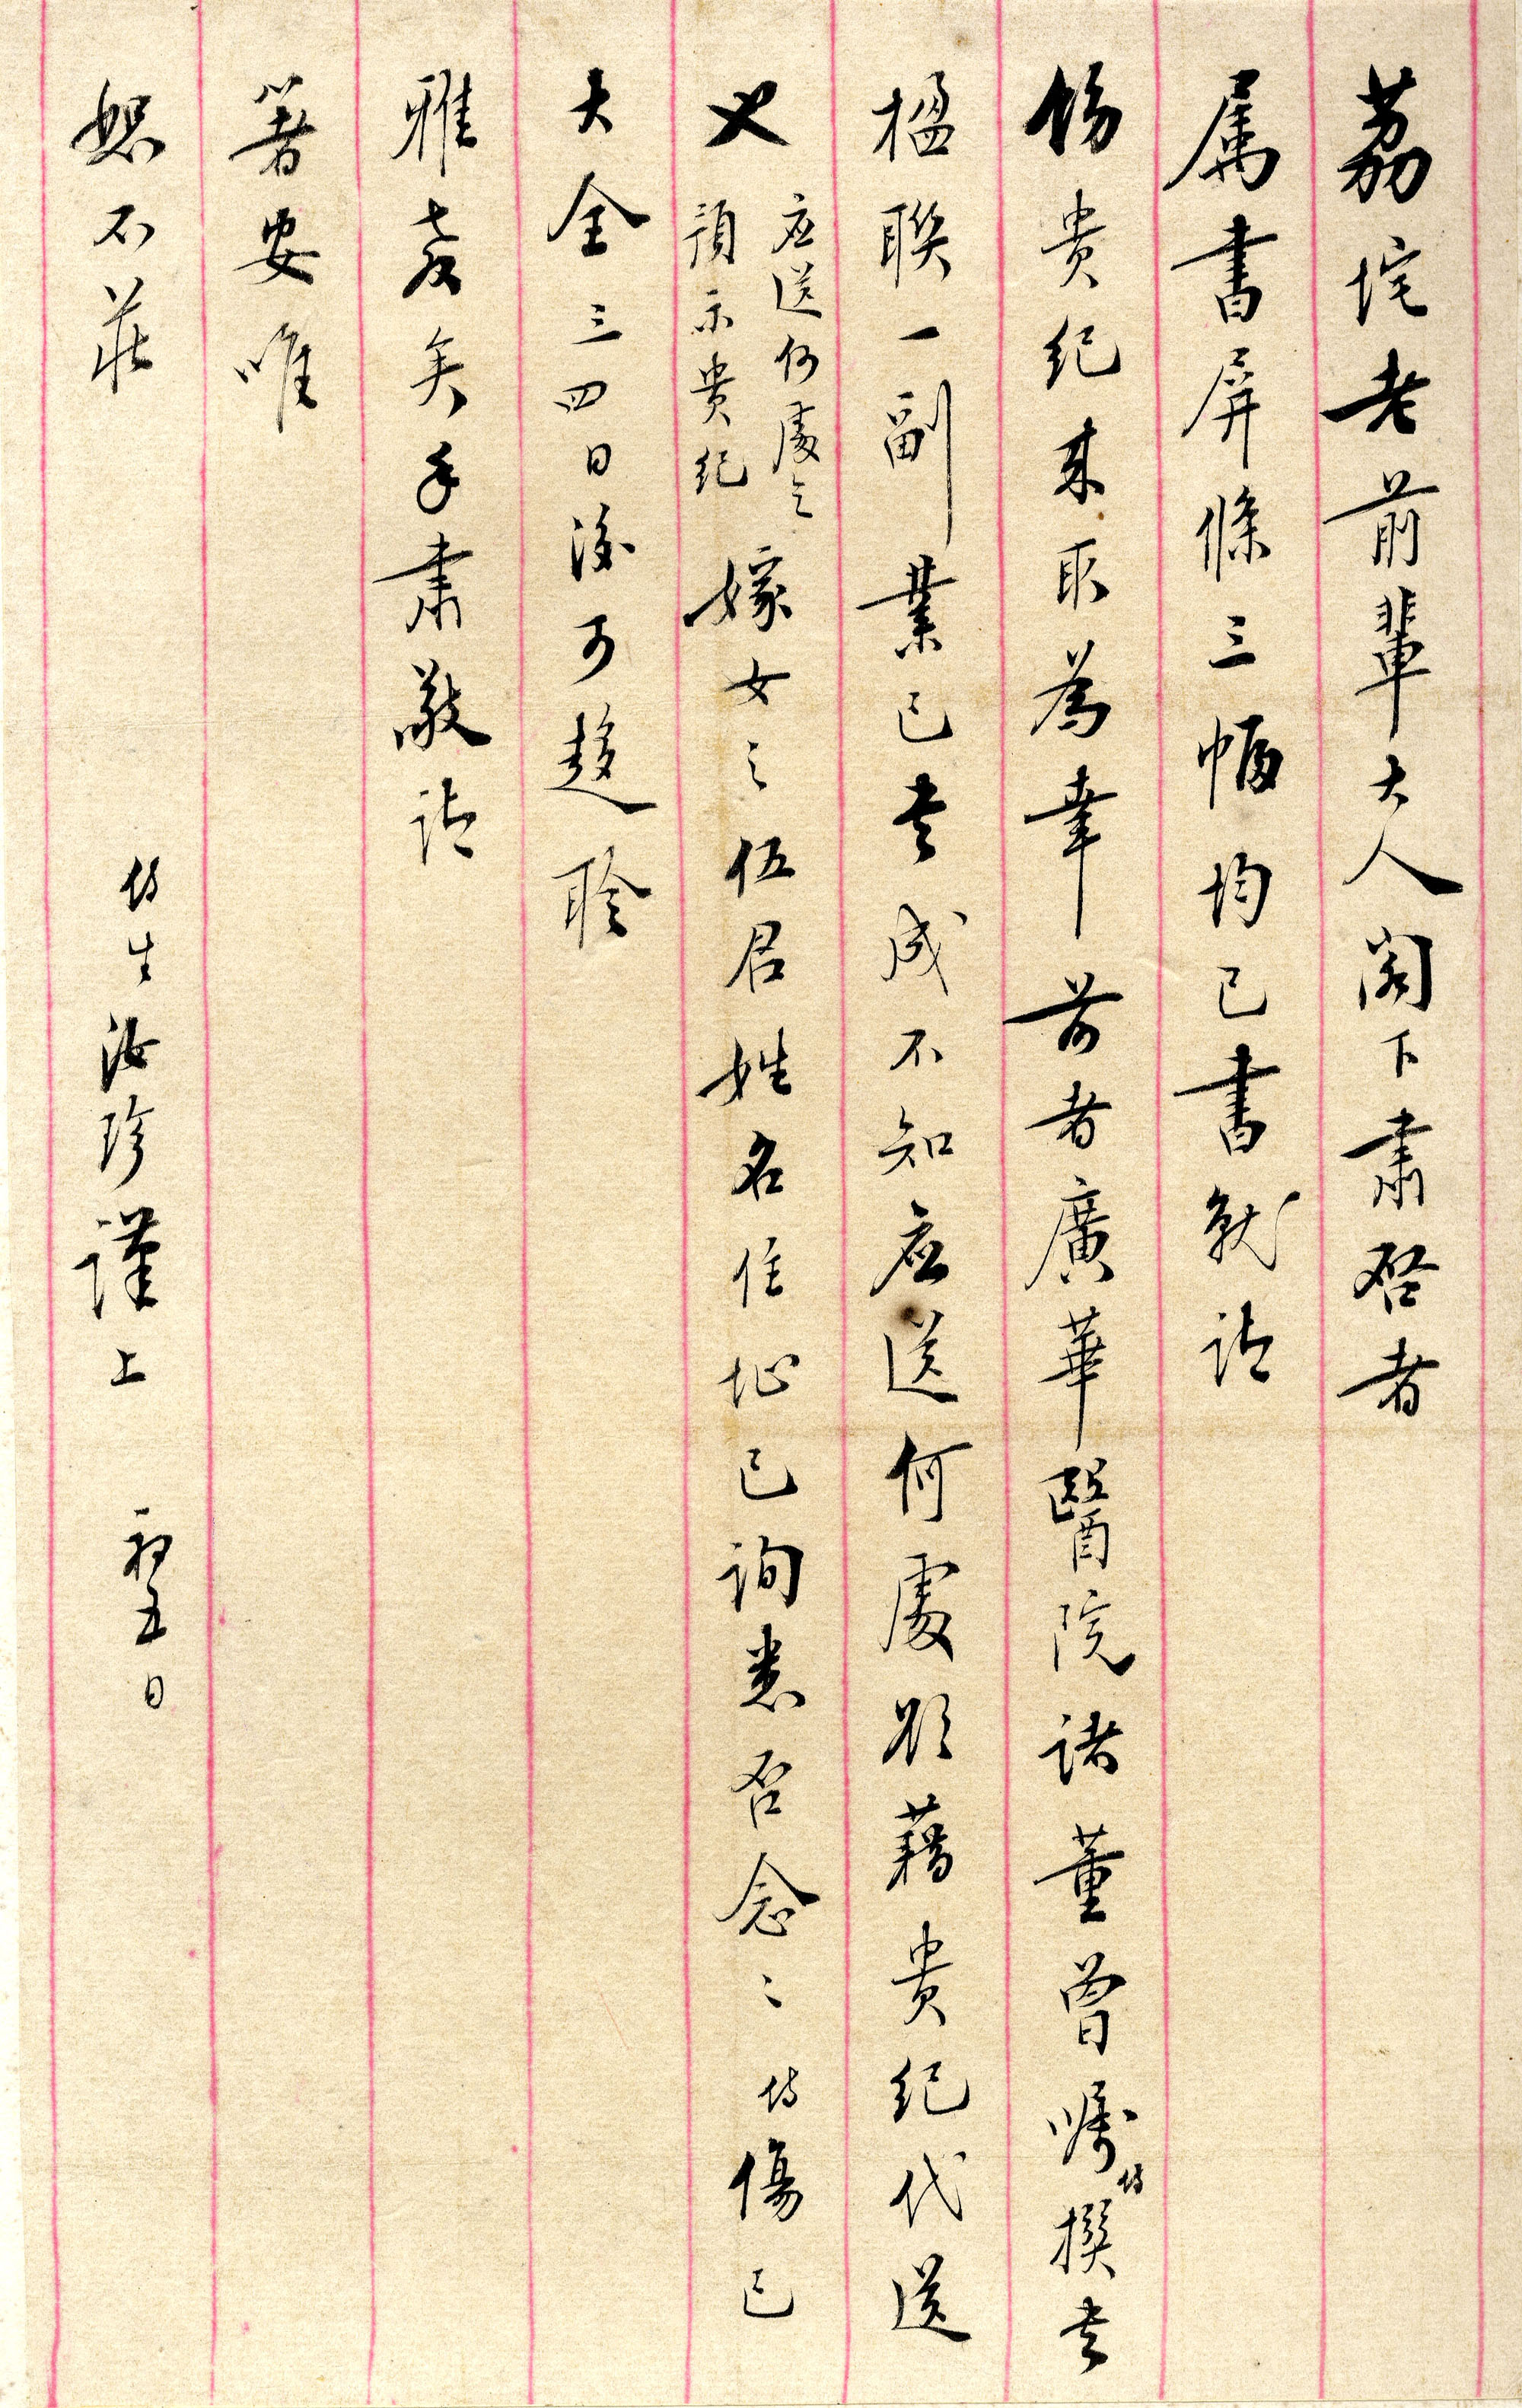 荔垞老前輩大人閣下肅啓者
属書屏條三幅均已書就請
飭貴紀来取為幸前者廣華醫院諸董曾嘱侍撰书
楹聯一副業已书成不知应送何處欲藉貴紀代送
又
应送何處乞
預示貴紀
嫁女之伍君姓名住址已詢悉否念〻侍傷已
大全三四日後可趨聆
雅教矣手肅敬請
箸安唯
恕不莊
侍生汝珍謹上 初五日